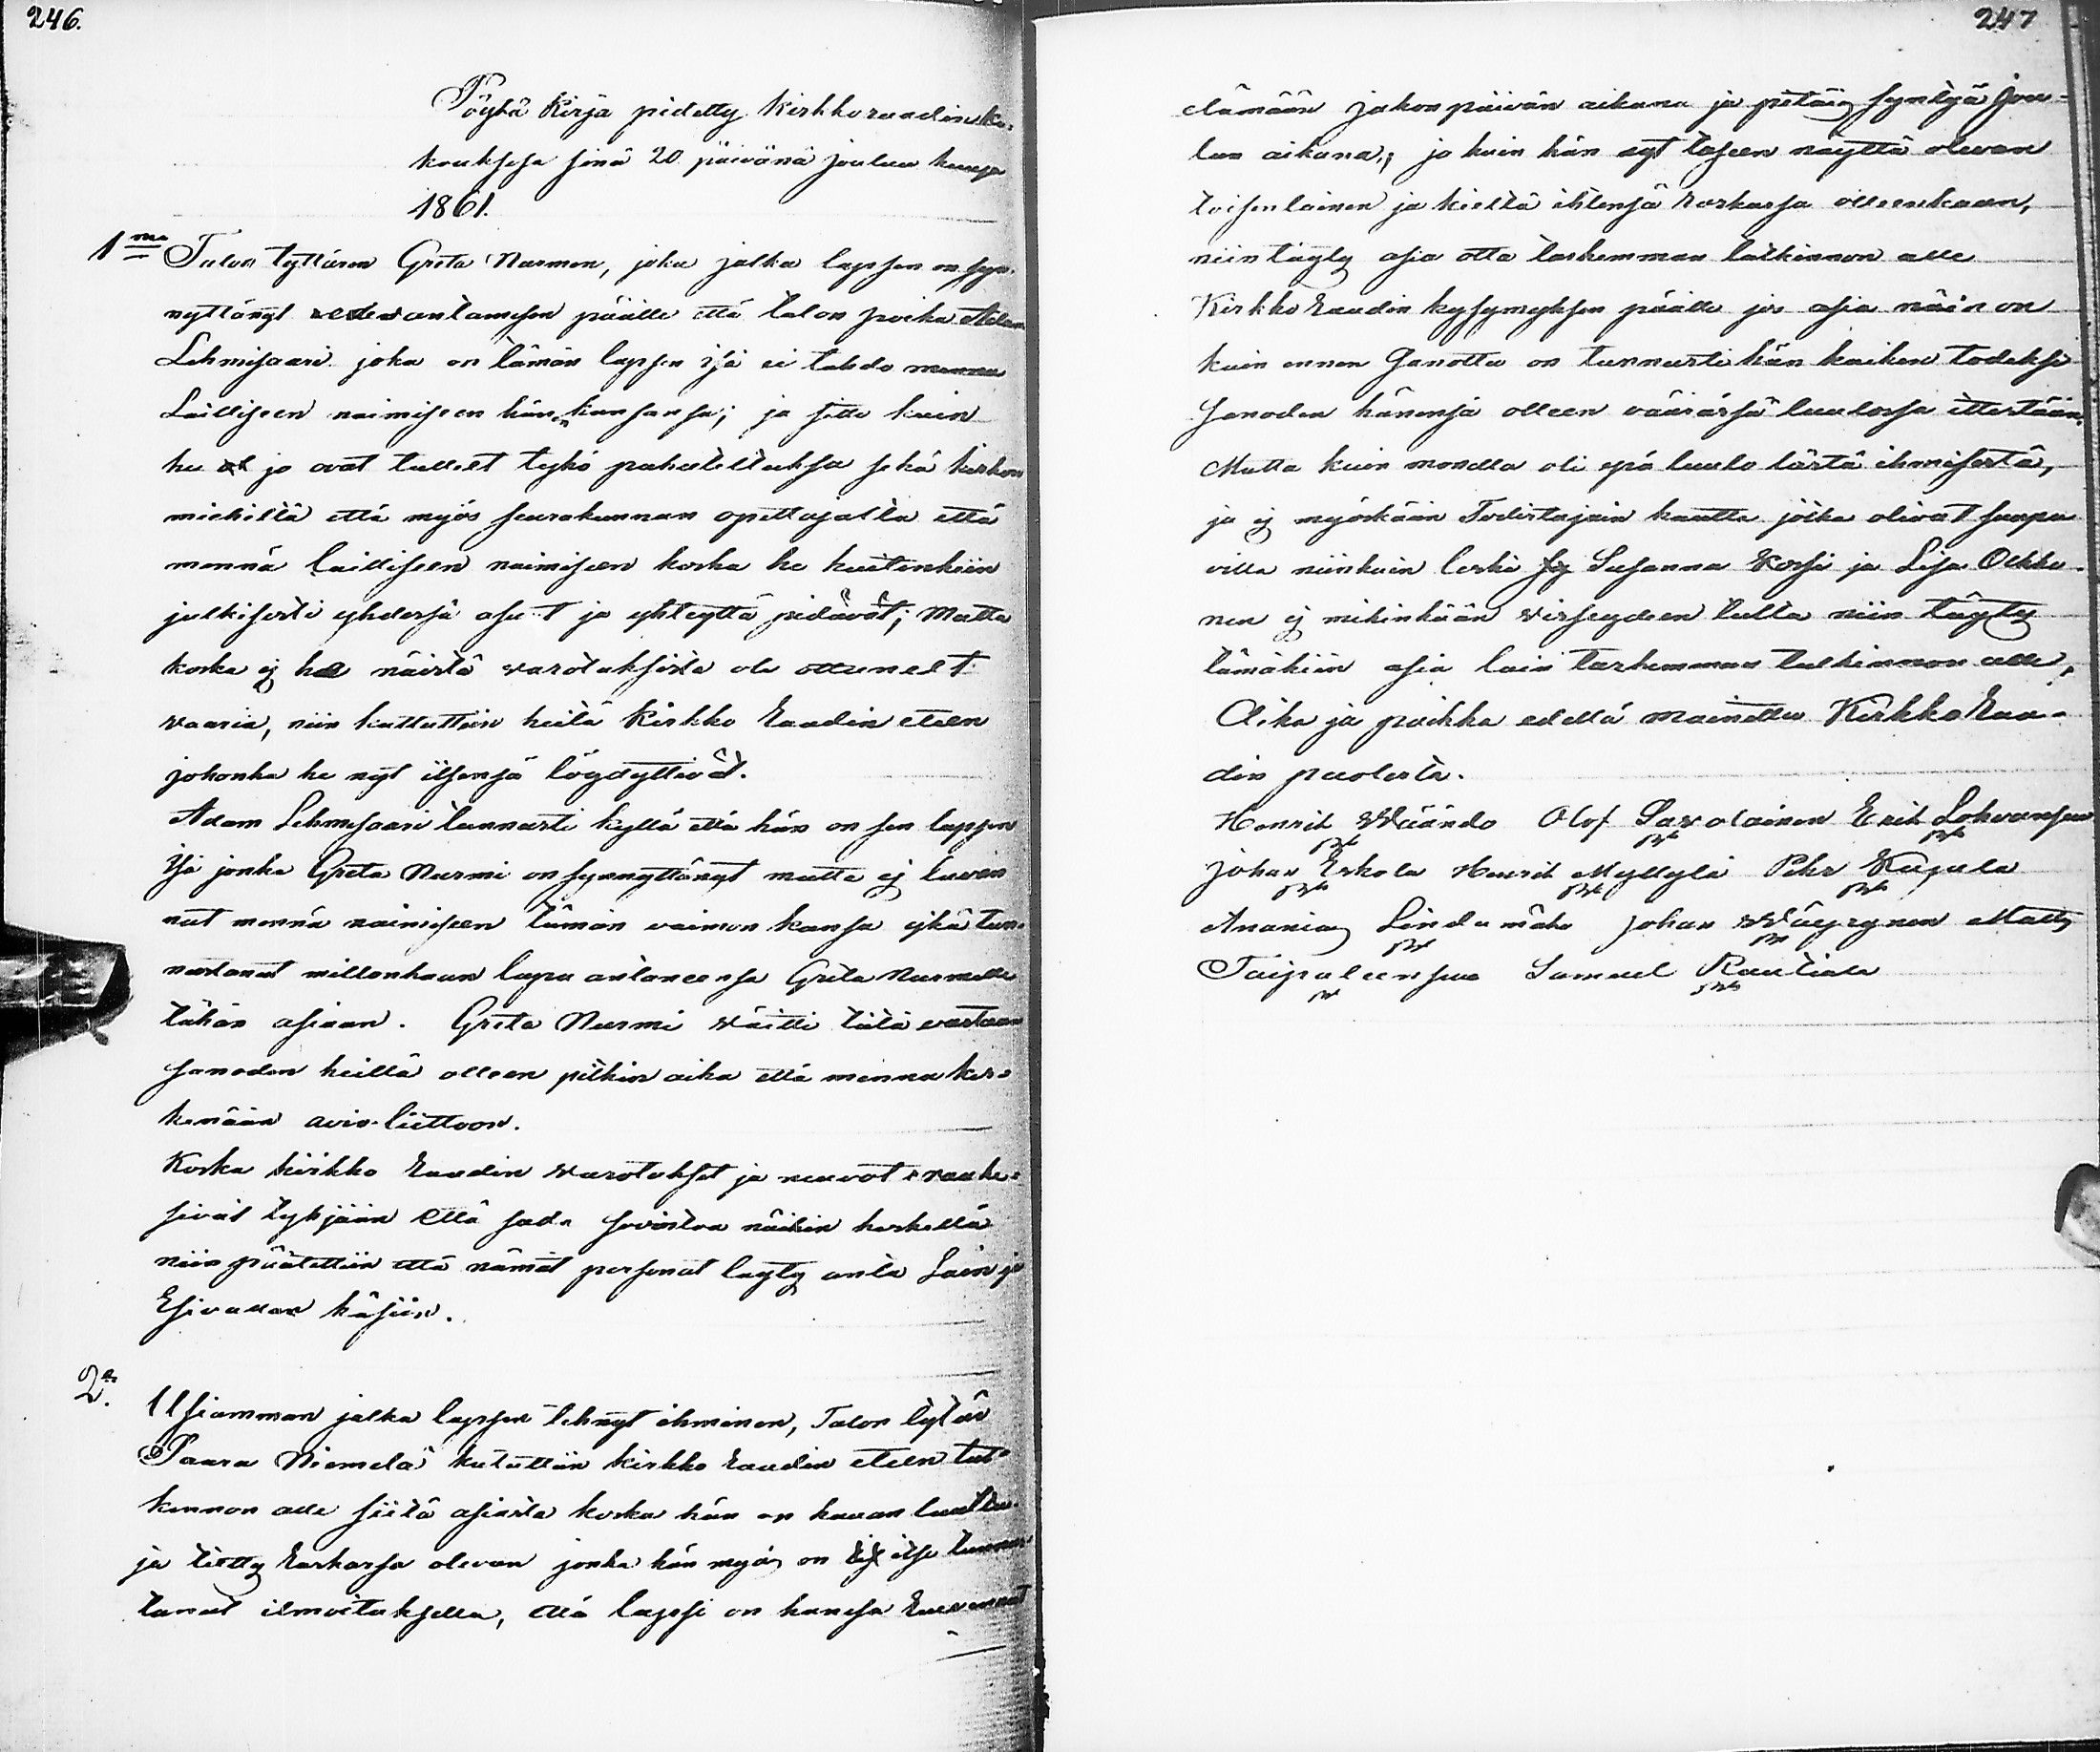 246.
Pöytä Kirja pidetty Kirkkoraadin ko-
kouksesa sinä 20 päivänä joulu kuusa
1861.
1mo Talon tyttären Greta Nurmen, joka jalka lapsen on syn-
nyttänyt edesantamisen päälle että talon poika Adam
Lehmisaari joka on tämän lapsen isä ei tahdo mennä
Lailliseen naimiseen hänen kansansa; ja sitte kuin
he jo ovat tullelt tykö puhutelluksa sekä kirkon
miehiltä että myös seurakunnan opettajalta että
mennä lailliseen naimiseen koska he kuitenkiin
julkisesti yhdessä asut ja yhteyttä pidävät; Mutta
koska ej he näistä varotuksista ole ottanelt
vaaria, niin kututtiin heitä Kirkko Raadin eteen
johonka he nyt itsensä löydyttivät.
Adam Lehmisaari tunnusti kyllä että hän on sen lapsen
isä jonka Greta Nurmi on synnyttänyt mutta ej luvan
nut mennä naimiseen tämän vaimon kansa ejkä tun-
nustanut millonkaan lupa antaneensa Greta Nurmelle
tähän asiaan. Greta Nurmi väitti tätä vastaan
sanoden heillä olleen pitkin aika että mennä kes-
kenään avio-liittoon.
Koska kirkko Raadin varotukset ja neuvot raukə-
sivat tyhjään että sada sovintoa näihin keskellä
niin päätettiin että nämät personat täyty anta Lain ja
Esivallan käsiin.
2o. Usiamman jalka lapsen tehnyt ihminen, Talon tytär
Saara Niemelä kututtiin kirkko Raadin eteen tut-
kinnon alle siitä asiasta koska hän on kauan luultu
ja tietty Raskassa olevan jonka hän myös on itse tunnus
tanut ilmoituksella, että lapsi on hänesä Ruvennut
247
elämään jakon päivän aikana ja pitäis syntyä Jou-
lun aikana; ja kuin hän nyt taseen näyttä olevan
toisenlainen ja kieltä ihtensä raskassa olleenkaan,
niin täyty asia otta tarkemman tutkinnon alle
Kirkko Raadin kysymyksen päälle jos asia näin on
kuin ennen Sanottu on tunnusti hän kaiken todeksi
Sanoden hänensä olleen väärässä luulossa ittestään.
Mutta kuin monella oli epä luulo tästä ihmisestä,
ja ej myöskään Todistajain kautta jotka olivat saapu
villa niinkuin leski Susanna Korsi ja Lisa Olkko-
nen ej mihinkään visseydeen tulla niin täyty
tämäkiin asia lain tarkemman tutkinnon alle,
Aika ja paikka edellä mainittu Kirkko Raa-
din puolesta.
Henrik Wäändo Olof Savolainen Erik Lohvansuu
Johan Erkola Henrik Myllylä Pehr Kujala
Ananias Lindumäki Johan Wäyrynen Matts
Taipaleensuu Samuel Rautiola